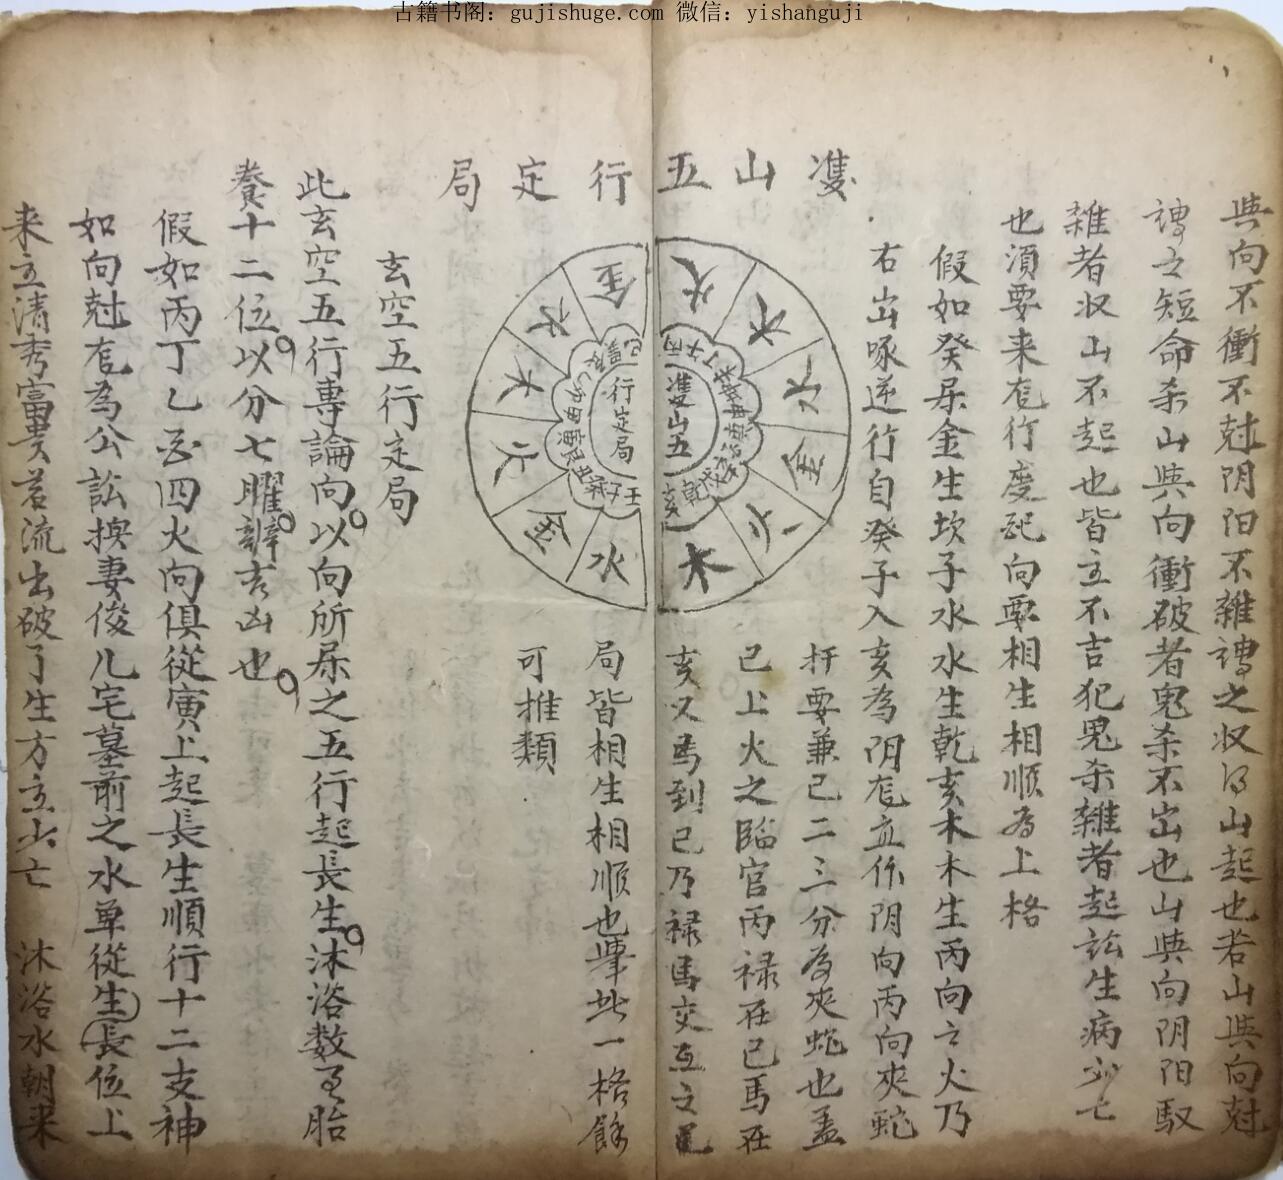 古籍书阁：gujishuge.com 微信：yishanguji
與向不衝不尅阴阳不雜
之収山起也若山與向尅
之短命杀山與向衝破者鬼杀不出也山與向阴阳馭
雜者収山不起也皆主不吉犯鬼杀雜者起訟生病少亡
也須要来龙行度配向要相生相順为上格
假如癸屎金生坎子水水生乾亥木木生丙向之火乃
右出啄逆行自癸子入亥為阴龙立作阴向丙向夾蛇
扞要兼已二三分为夾蛇也盖
已上火之臨官丙禄在已馬在
亥又馬到已乃禄馬交互之
局皆相生相順也舉此一格餘
可推類
山五行定局
火
木
水
金
火
木
水
金
火
木
水
金
山五
行定局
玄空五行定局
此玄空五行專論向以向所屎之五行起長生沐浴数至胎
養十二位以分七曜辯吉凶也
假如丙丁乙酉四火向俱從寅上起長生順行十二支神
如向尅龙為公訟换妻俊儿宅墓前之水单從生長位上
来立清秀富貴若流出破了生方主少亡 沐浴水朝来